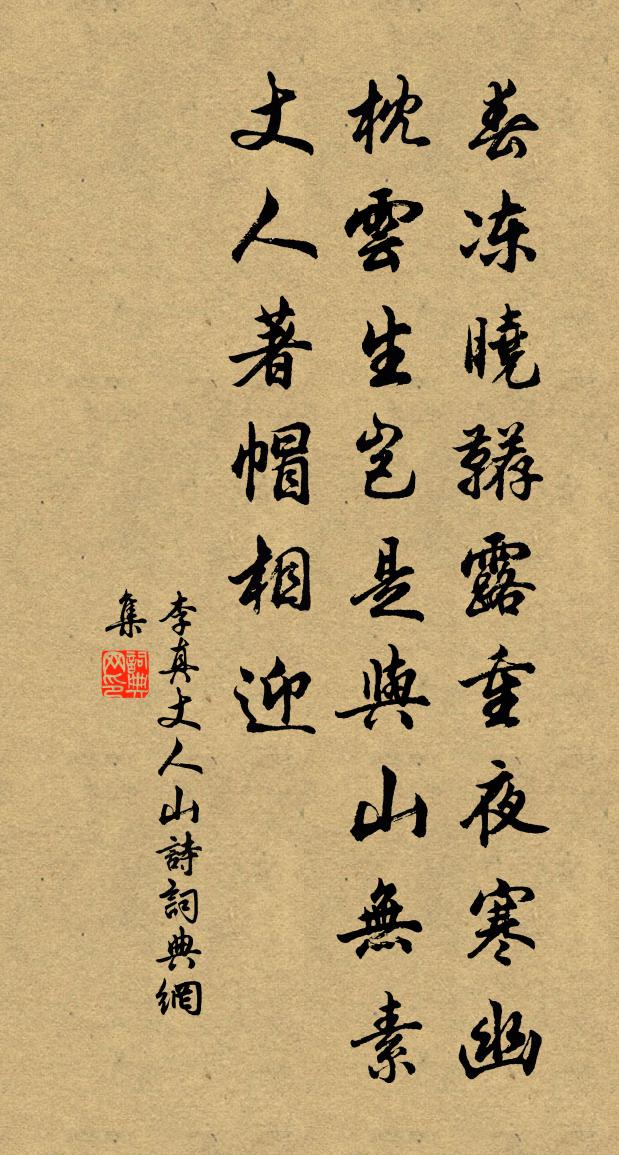 春冻曉鞯露重夜寒幽
枕雲生岂是與山無素
丈人著帽相迎
李真丈人山詩詞典網
集
詞典
网印